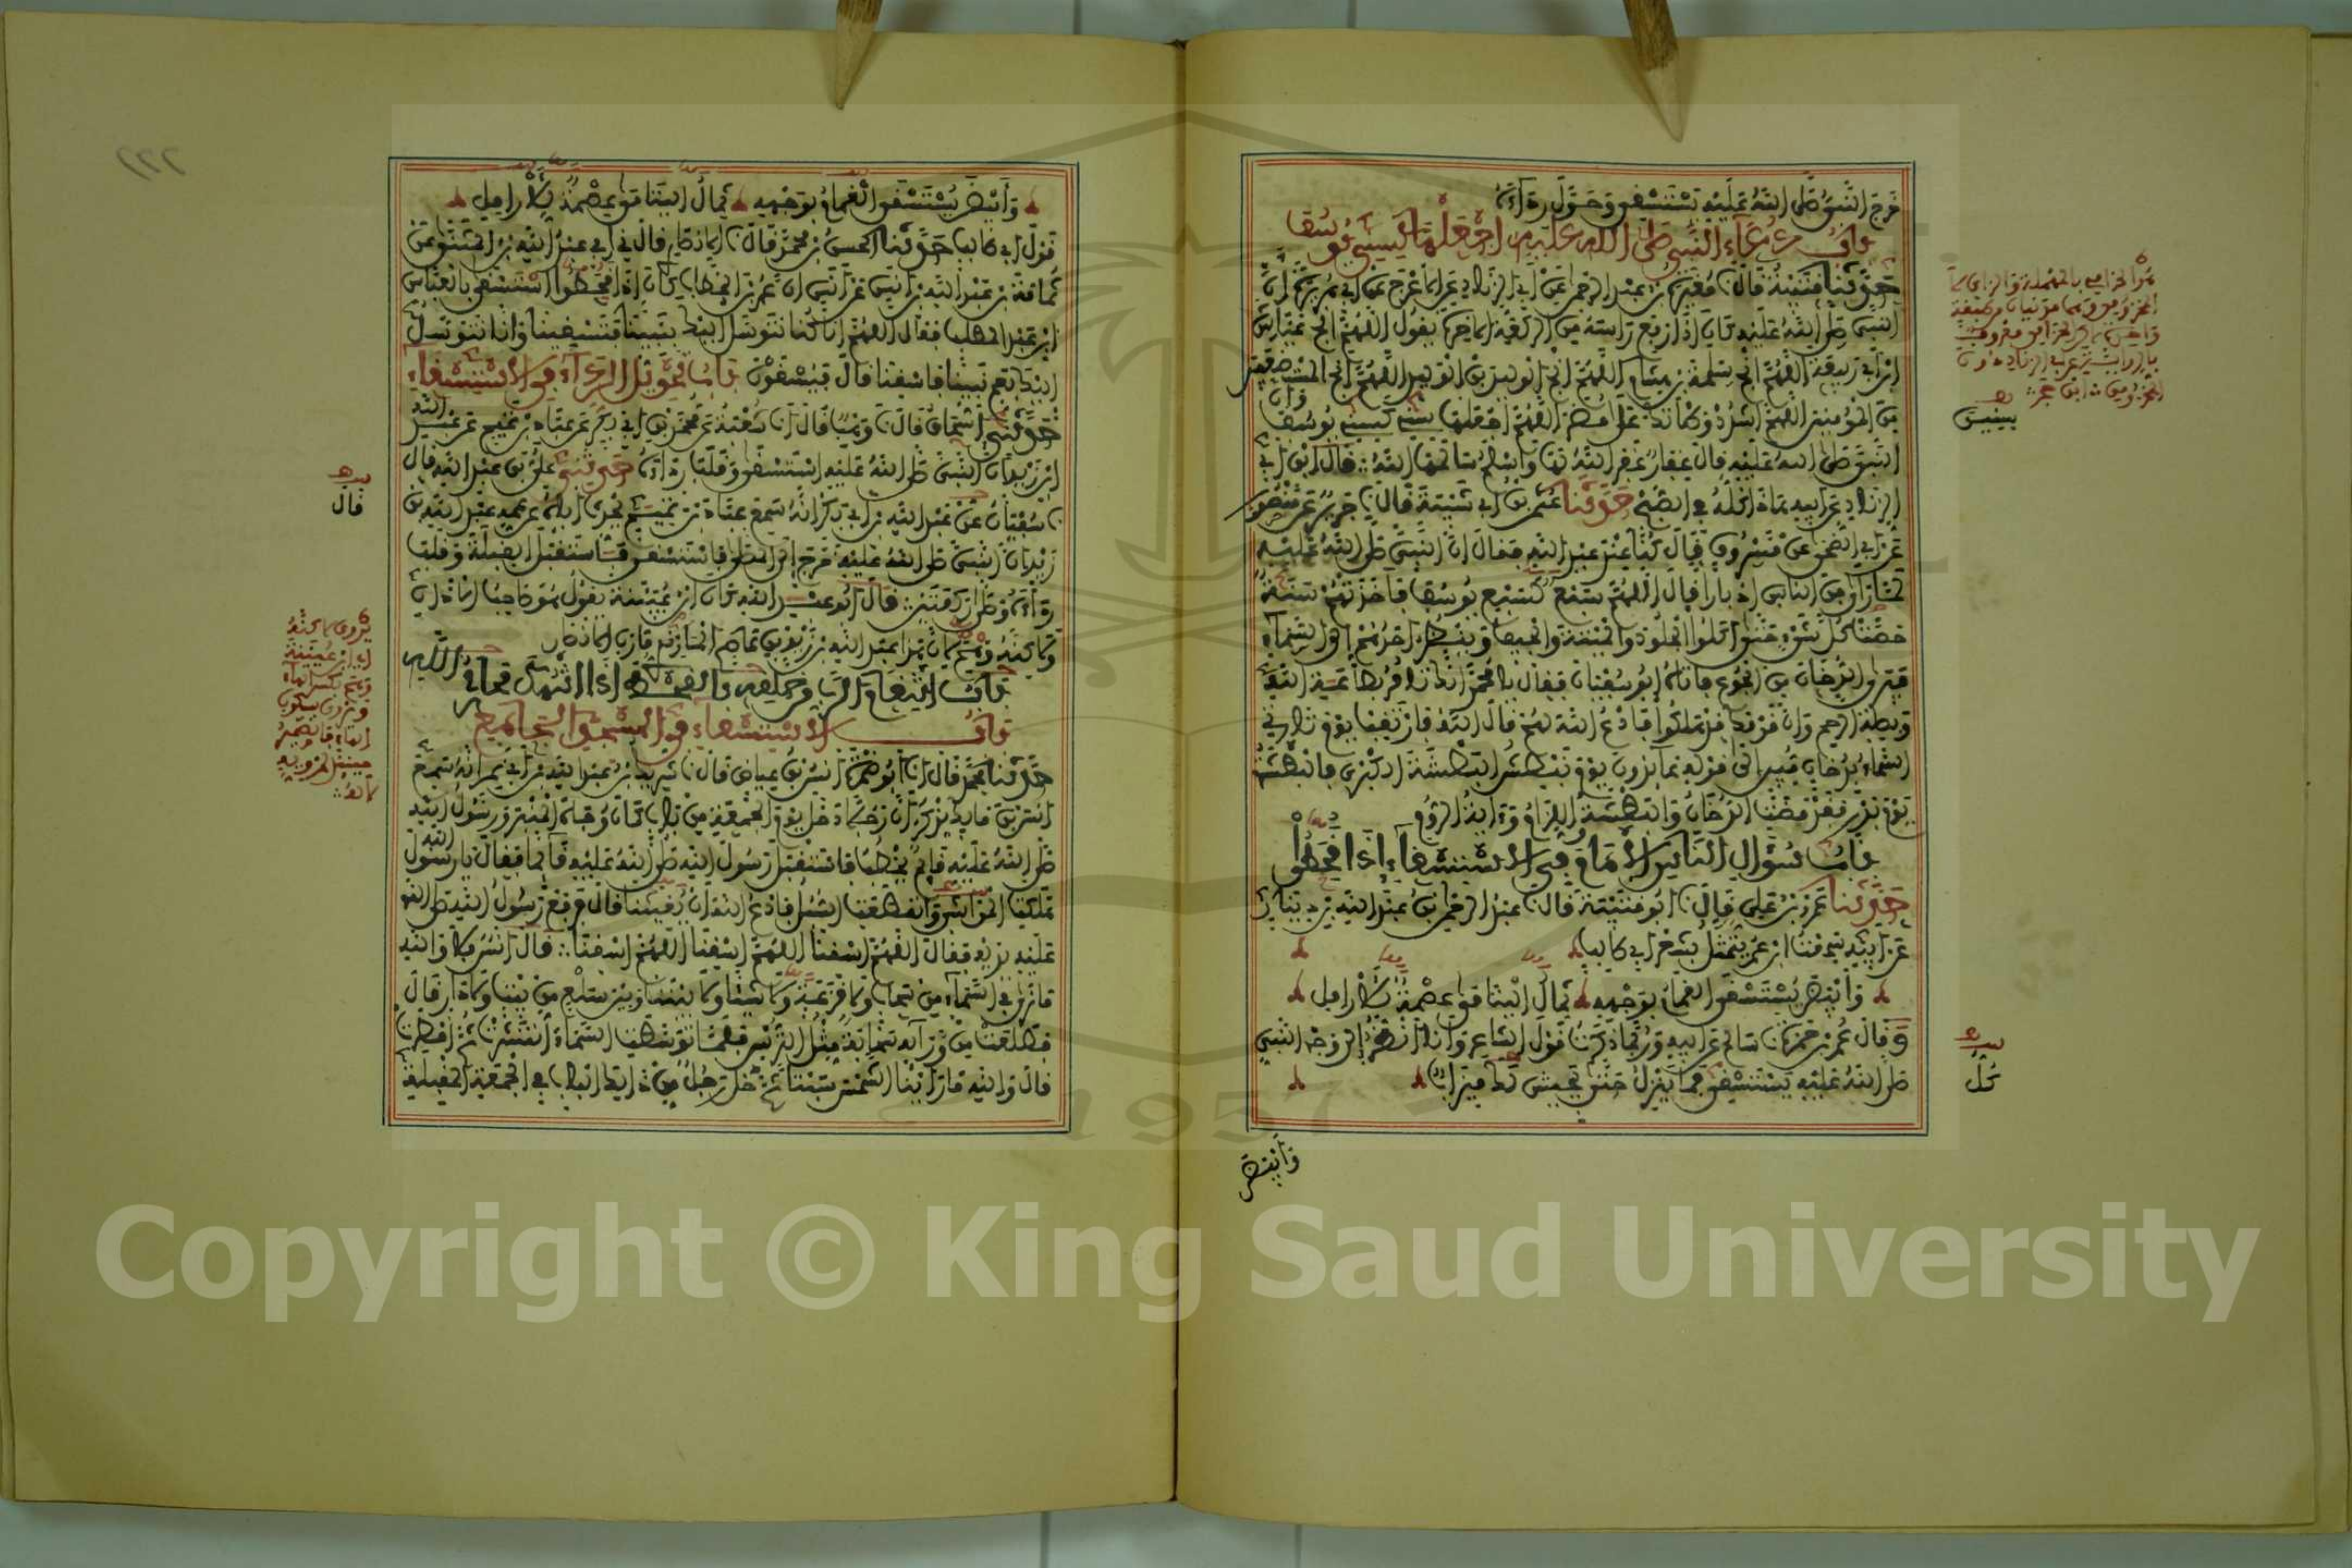 خرج النبي صلى الله عليه يستسقي وحول رداءه
باب دعاء النبي صلى الله عليه اجعلها كسني يوسف
حدثنا قتيبة قال نا مغيرة بن عبد الرحمن عن أبي الزناد عن الأعرج عن أبي هريرة أن
النبي صلى الله عليه كان إذا رفع رأسه من الركعة الآخرة يقول اللهم أنج عياش
ابن أبي ربيعة اللهم أنج سلمة بن هشام اللهم أنج الوليد بن الوليد اللهم أنج المستضعفين
من المؤمنين اللهم اشدد وطأتك على مضر اللهم اجعلها سنين كسني يوسف وأن
النبي صلى الله عليه قال غفار غفر الله لها وأسلم سالمها الله قال ابن أبي
الزناد عن أبيه هذا كله في الصبح حدثنا عثمان بن أبي شيبة قال نا جرير عن منصور
عن أبي الضحى عن مسروق قال كنا عند عبد الله فقال إن النبي صلى الله عليه
لما رأى من الناس إدبارا قال اللهم سبع كسبع يوسف فأخذتهم سنة
حصت كل شيء حتى أكلوا الجلود والميتة والجيف وينظر أحدهم إلى السماء
فيرى الدخان من الجوع فأتاه أبو سفيان فقال يا محمد إنك تأمر بطاعة الله
وبصلة الرحم وإن قومك قد هلكوا فادع الله لهم قال الله فارتقب يوم تأتي
السماء بدخان مبين إلى قوله عائدون يوم نبطش البطشة الكبرى فالبطشة
يوم بدر فقد مضت الدخان والبطشة واللزام وآية الروم
باب سؤال الناس الإمام في الاستسقاء إذا قحطوا
حدثنا عمرو بن علي قال نا أبو قتيبة قال نا عبد الرحمن بن عبد الله بن دينار
عن أبيه سمعت ابن عمر يتمثل بشعر أبي طالب
وأبيض يستسقى الغمام بوجهه ثمال اليتامى عصمة للأرامل
وقال عمر بن حمزة نا سالم عن أبيه وربما ذكرت قول الشاعر وأنا أنظر إلى وجه النبي
صلى الله عليه يستسقي فما ينزل حتى يجيش لك ميزاب
وأبيض
كل
وأبيض يستسقى الغمام بوجهه ثمال اليتامى عصمة للأرامل
قول أبي طالب حدثنا الحسن بن محمد قال نا الأنصاري قال ني أبي عبد الله بن المثنى عن
ثمامة بن عبد الله بن أنس عن أنس أن عمر بن الخطاب كان إذا قحطوا استسقى بالعباس
ابن عبد المطلب فقال اللهم إنا كنا نتوسل إليك بنبينا فتسقينا وإنا نتوسل
إليك بعم نبينا فاسقنا قال فيسقون باب تحويل الرداء في الاستسقاء
حدثني إسحاق قال نا وهب قال أنا شعبة عن محمد بن أبي بكر عن عباد بن تميم عن عبد الله
ابن زيد أن النبي صلى الله عليه استسقى وقلب رداءه حدثني علي بن عبد الله قال
نا سفيان عن عبد الله بن أبي بكر أنه سمع عباد بن تميم يحدث أباه عن عمه عبد الله بن
زيد أن النبي صلى الله عليه خرج إلى المصلى فاستسقى فاستقبل القبلة وقلب
رداءه وصلى ركعتين قال أبو عبد الله كان ابن عيينة يقول هو صاحب الأذان
ولكنه وهم لأن هذا عبد الله بن زيد بن عاصم المازني مازن الأنصار
باب انتقام الرب من خلقه بالقحط إذا انتهك محارم الله
باب الاستسقاء في المسجد الجامع
حدثنا محمد قال أنا أبو ضمرة أنس بن عياض قال نا شريك بن عبد الله بن أبي نمر أنه سمع
أنس بن مالك يذكر أن رجلا دخل يوم الجمعة من باب كان وجاه المنبر ورسول الله
صلى الله عليه قائم يخطب فاستقبل رسول الله صلى الله عليه قائما فقال يا رسول الله
هلكت المواشي وانقطعت السبل فادع الله أن يغيثنا قال فرفع رسول الله صلى الله
عليه يديه فقال اللهم اسقنا اللهم اسقنا اللهم اسقنا قال أنس فلا والله
ما نرى في السماء من سحاب ولا قزعة ولا شيئا ولا بيننا وبين سلع من بيت ولا دار قال
فطلعت من ورائه سحابة مثل الترس فلما توسطت السماء انتشرت ثم أمطرت
قال والله ما رأينا الشمس سبتا ثم دخل رجل من ذلك الباب في الجمعة المقبلة
قال
٢٢٢
Copyright © King Saud University
1957